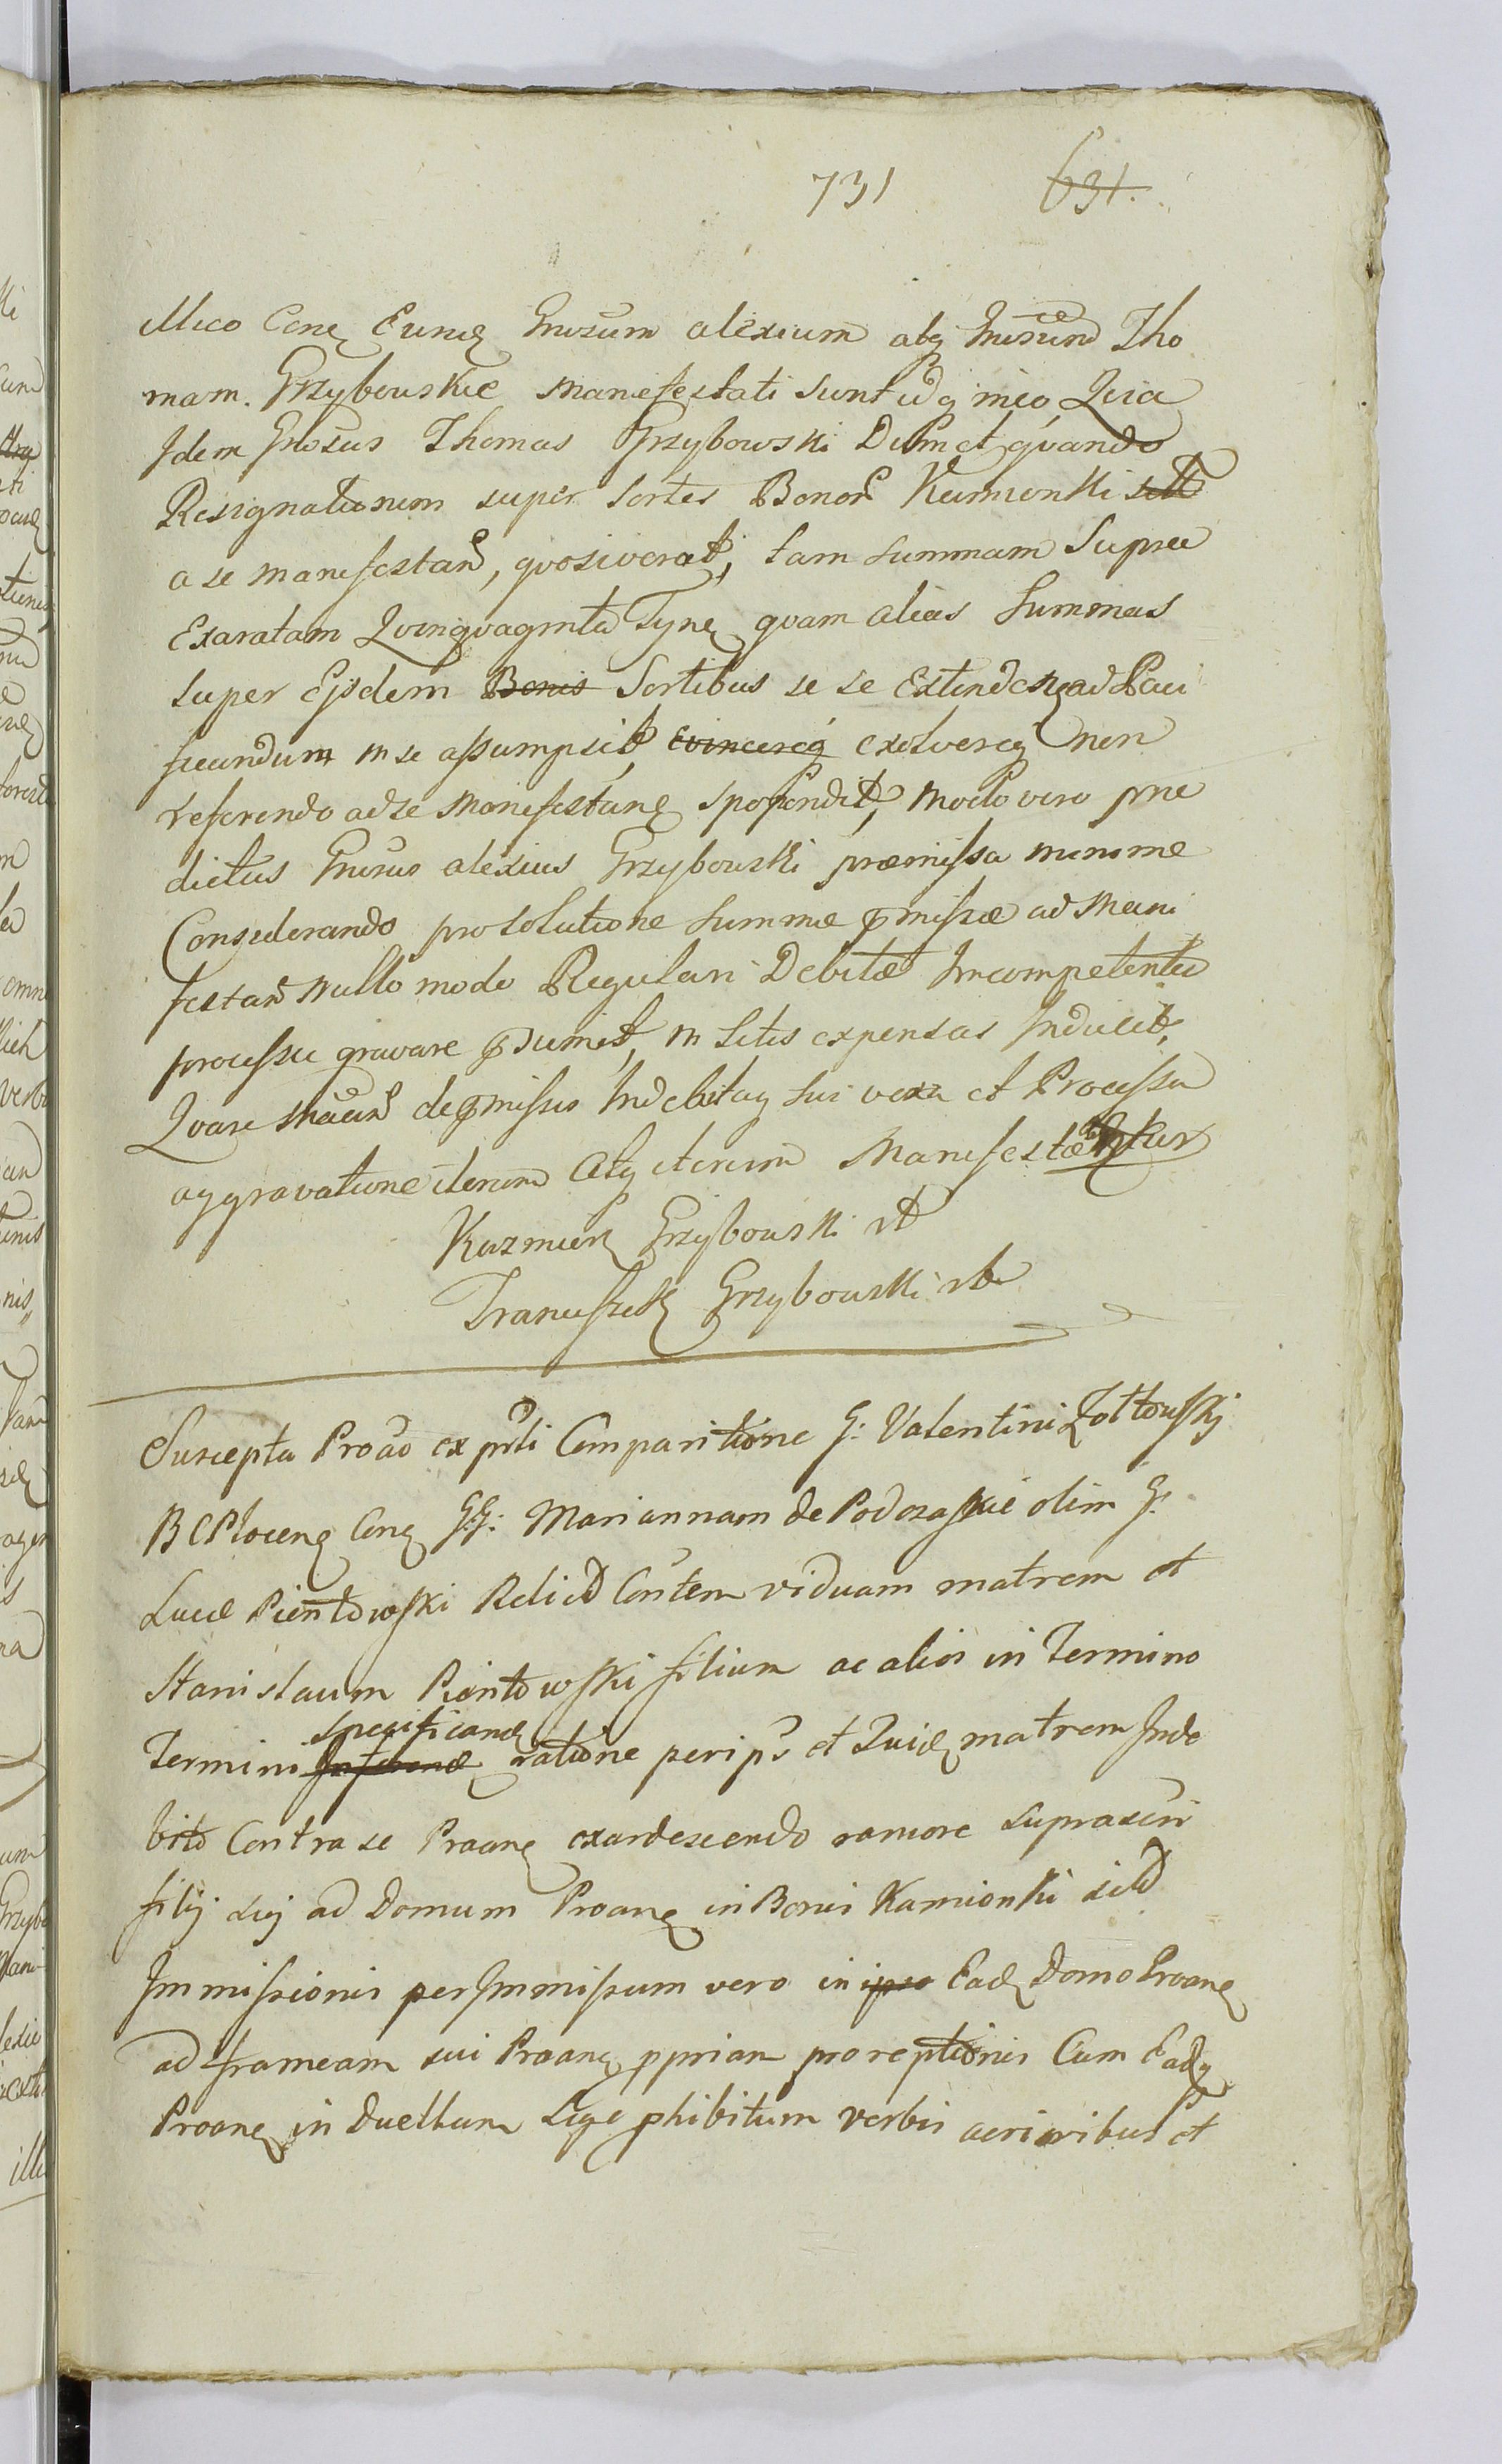 731 631.
illico Conq Eunq Gnosum alexium atq Gnosum Tho
mam. Grzybowskie manifestati sunt idq ineo Quia
Idem Gnosus Thomas Grzybowski Dum et qvando
Resignationem super sortes Bonor Kamionki sitt
a se manifestan, qvosiverat, tam summam Supra
Exaratam Qvinqvaginta Tynq qvam alias Summas
super Ejsdem Bonis Sortibus se se Extendenq ad Paci
ficandum in se assumpsit, evincereq exolvereq non
referendo ad se Manifestanq spopondit, modo vero prae
dictus Gnosus alexius Grzybowski praemissa minime
Considerando pro solutione summae pmissae ad Mani
festan Nullo modo Regulari Debitae Incompetenti
processu gravare psumit, in Litis expensas Inducit,
Qvare Maan de pmissis Indebitaq sui vexa et Processu
aggravatione iterum atq iterum Manifestantur
Kazmierz Grzybowski
Franciszek Grzybowski
Suscepta Proao ex prti Comparitione G: Valentini Zołtowskj
BCPlocenq Conq GG: Mariannam de Podoraskie olim G.
Lucae Pientowski Relict Contem viduam matrem et
Stanislaum Pientowski filium ac alios in Termino
Termino Inferend specificandq ratione peripo et Quidq matrem Inde
bito Contra se Proanq exardescendo ramore suprascri
filij sui ad Domum Proanq in Bonis Kamionki sitt
Immissionis per Immissum vero in ipso Eadq Domo Proanq
ad frameam sui Proanq ppriam proreptionis Cum Eadq
Proanq in Duellum Lege phibitum verbis acrioribus et